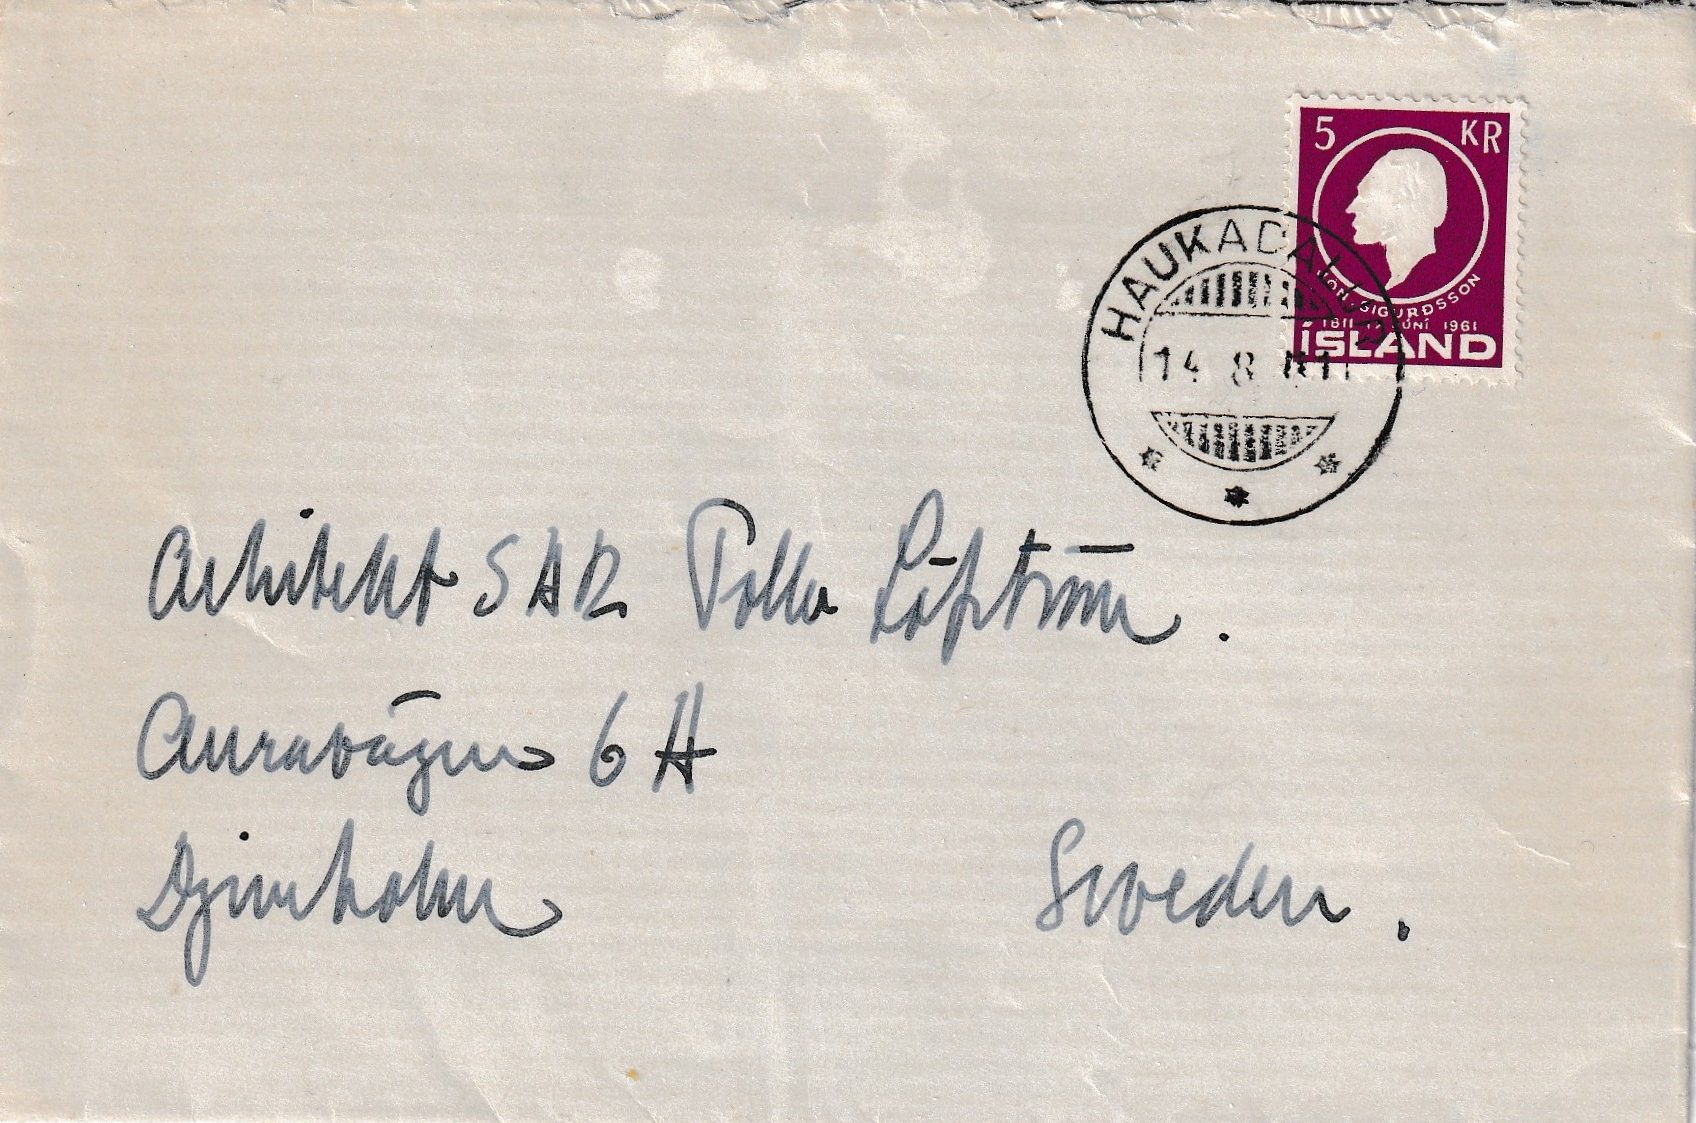 5 KR
JÓN SIGURÐSSON
1811 17 JÚNÍ 1961
ÍSLAND
HAUKADALUR
14 8
Arkitekt SAR Tolle Löfström.
Auravägen 6 A
Djursholm
Sweden.